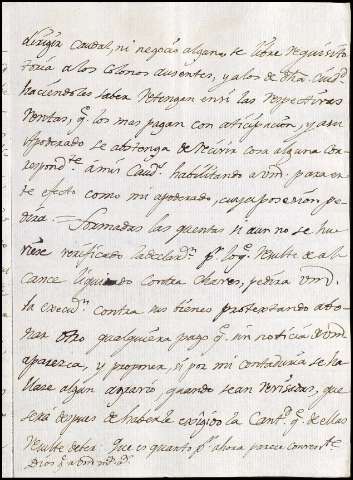 dirigir caudal, ni negocio alguno, se libre requisito
toria a los colonos ausentes, y a los de dha. Ciud.
haciendoles saber retengan en si las respectivas
rentas, q. los mas pagan con anticipacion, y a su
Apoderado se abstenga de recivir cosa alguna co
rrespond.te à mis Caud.s habilitando a Vm. para es
te efecto como mi apoderado, cuya posesion pe
dirà. = Formadas las quentas si aun no se hu
viese verificado la declar.n p.r lo q. resulte de al
cance liquido contra Chaves, pedirà Vm.
la execuc.n contra sus vienes protextando abo
nar otro qualquiera pago q. sin noticia de Vm
aparezca, y proponer, si por mi contaduria se ha
llase algun agravio, quando sean revisadas, que
serà despues de haberle exigido la Cant.d q. de ellas
resulte deber. Que es quanto p.r ahora parece conven.te
Dios g. a Vm. m. a.